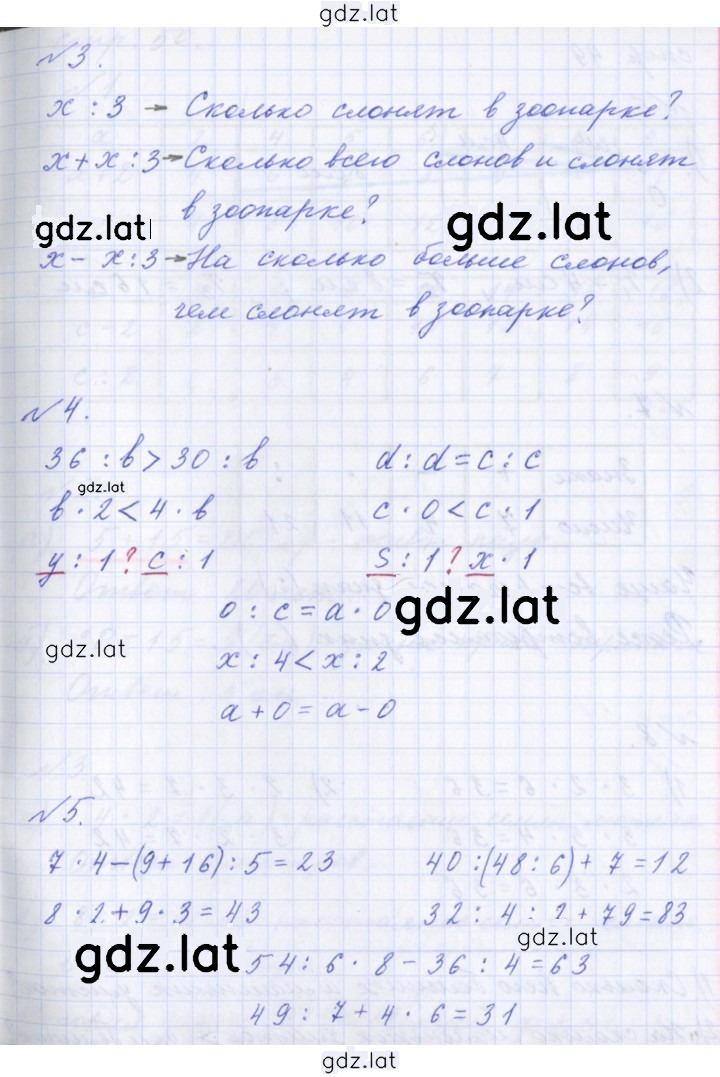 gdz.lat
№3.
x : 3 → Сколько слонят в зоопарке?
x + x : 3 → Сколько всего слонов и слонят
в зоопарке?
gdz.lat
gdz.lat
x - x : 3 → На сколько больше слонов,
чем слонят в зоопарке?
№4.
36 : b > 30 : b
d : d = c : c
gdz.lat
b · 2 < 4 · b
c · 0 < c : 1
y : 1 ? c : 1
s : 1 ? x · 1
0 : c = a · 0
gdz.lat
gdz.lat
x : 4 < x : 2
a + 0 = a - 0
№5.
7 · 4 - (9 + 16) : 5 = 23
40 : (48 : 6) + 7 = 12
8 · 2 + 9 · 3 = 43
32 : 4 : 2 + 79 = 83
gdz.lat
gdz.lat
54 : 6 · 8 - 36 : 4 = 63
49 : 7 + 4 · 6 = 31
gdz.lat